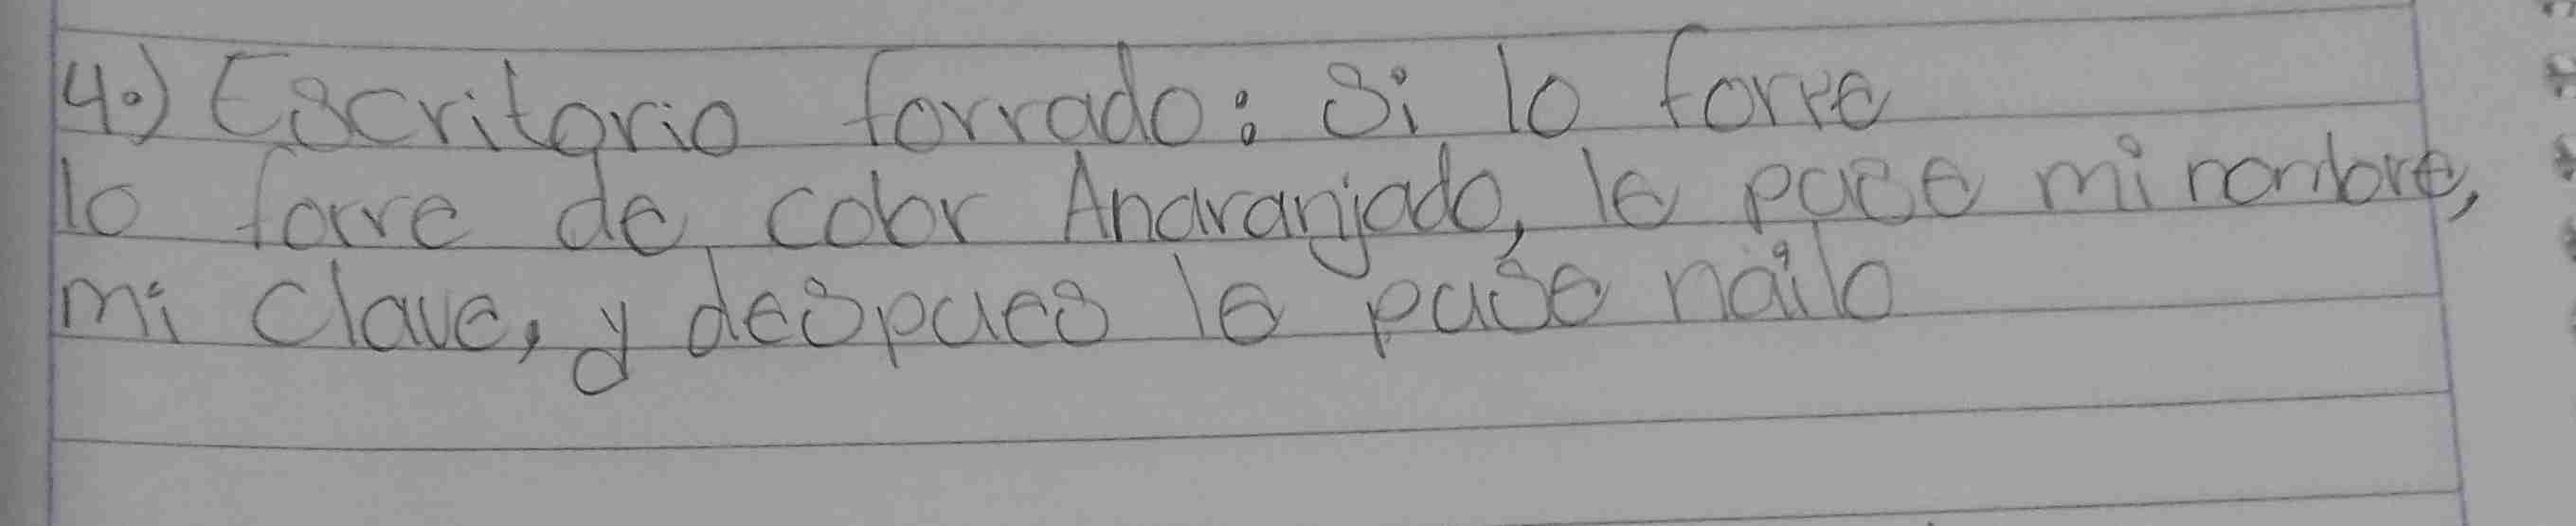 4.) Escritorio forrado: Si lo forre
lo forre de color Anaranjado, le puse mi nombre,
mi clave, y despues le puse nailo